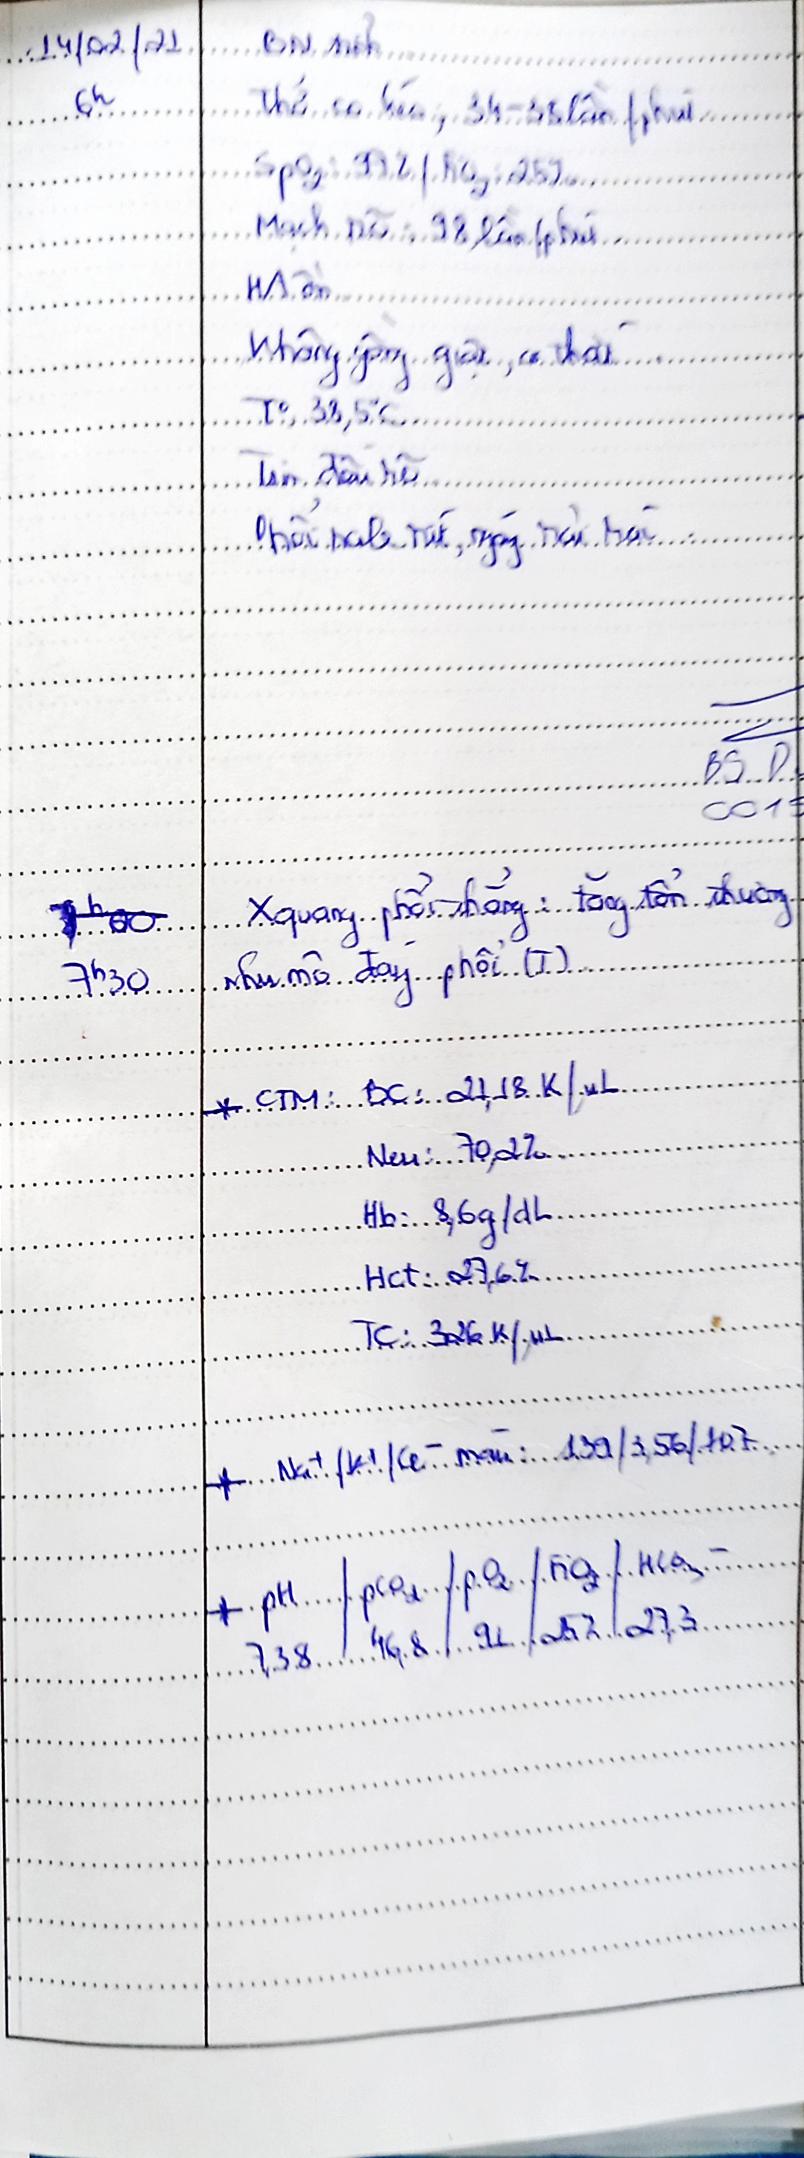 14/02/21 BN tỉnh
6h Thở co kéo, 34-38 lần/phút
SpO2: 97%/FiO2: 25%
Mạch rõ: 98 lần/phút
HA ổn
Không gồng giật,
T°: 38,5°C
Tim đều rõ
Phổi rale nổ,
BS
7h00
Xquang phổi thẳng: tăng tổn thương
7h30 nhu mô đáy phổi (T)
+ CTM: BC: 21,18 K/uL
Neu: 70,2%
Hb: 8,6g/dL
Hct: 27,6%
TC: 326 K/uL
+ Na+/K+/Cl- máu: 139/3,56/107
+ pH / pCO2 / pO2 / FiO2 / HCO3-
7,38 / 46,8 / 91 / 25% / 27,3